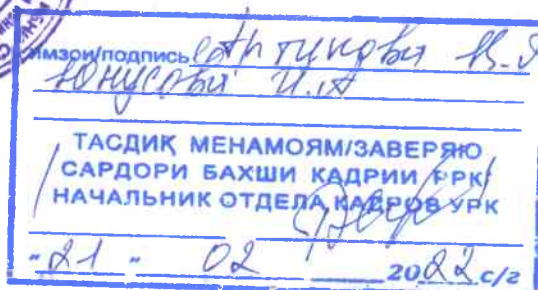 имзои/подпись
Юнусова И.А
ТАСДИҚ МЕНАМОЯМ/ЗАВЕРЯЮ
САРДОРИ БАХШИ КАДРИИ РРК
НАЧАЛЬНИК ОТДЕЛА КАДРОВ УРК
"21" 02 2022 с/г